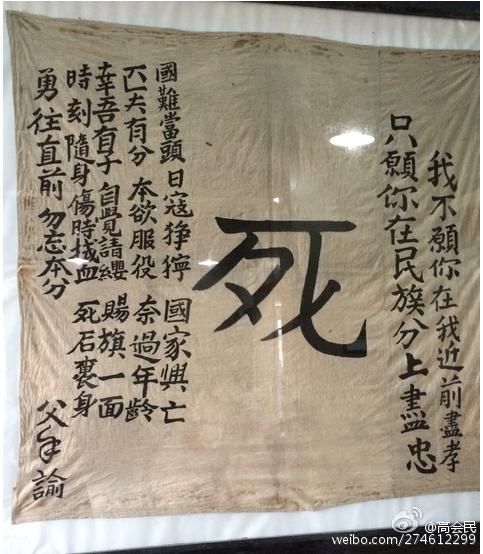 我不願你在我近前盡孝
只願你在民族分上盡忠
死
國難當頭 日寇猙獰 國家興亡
匹夫有分 本欲服役 奈過年齡
幸吾有子 自覺請纓 賜旗一面
時刻隨身 傷時拭血 死后裹身
勇往直前 勿忘本分
父手諭
@高会民
weibo.com/274612299